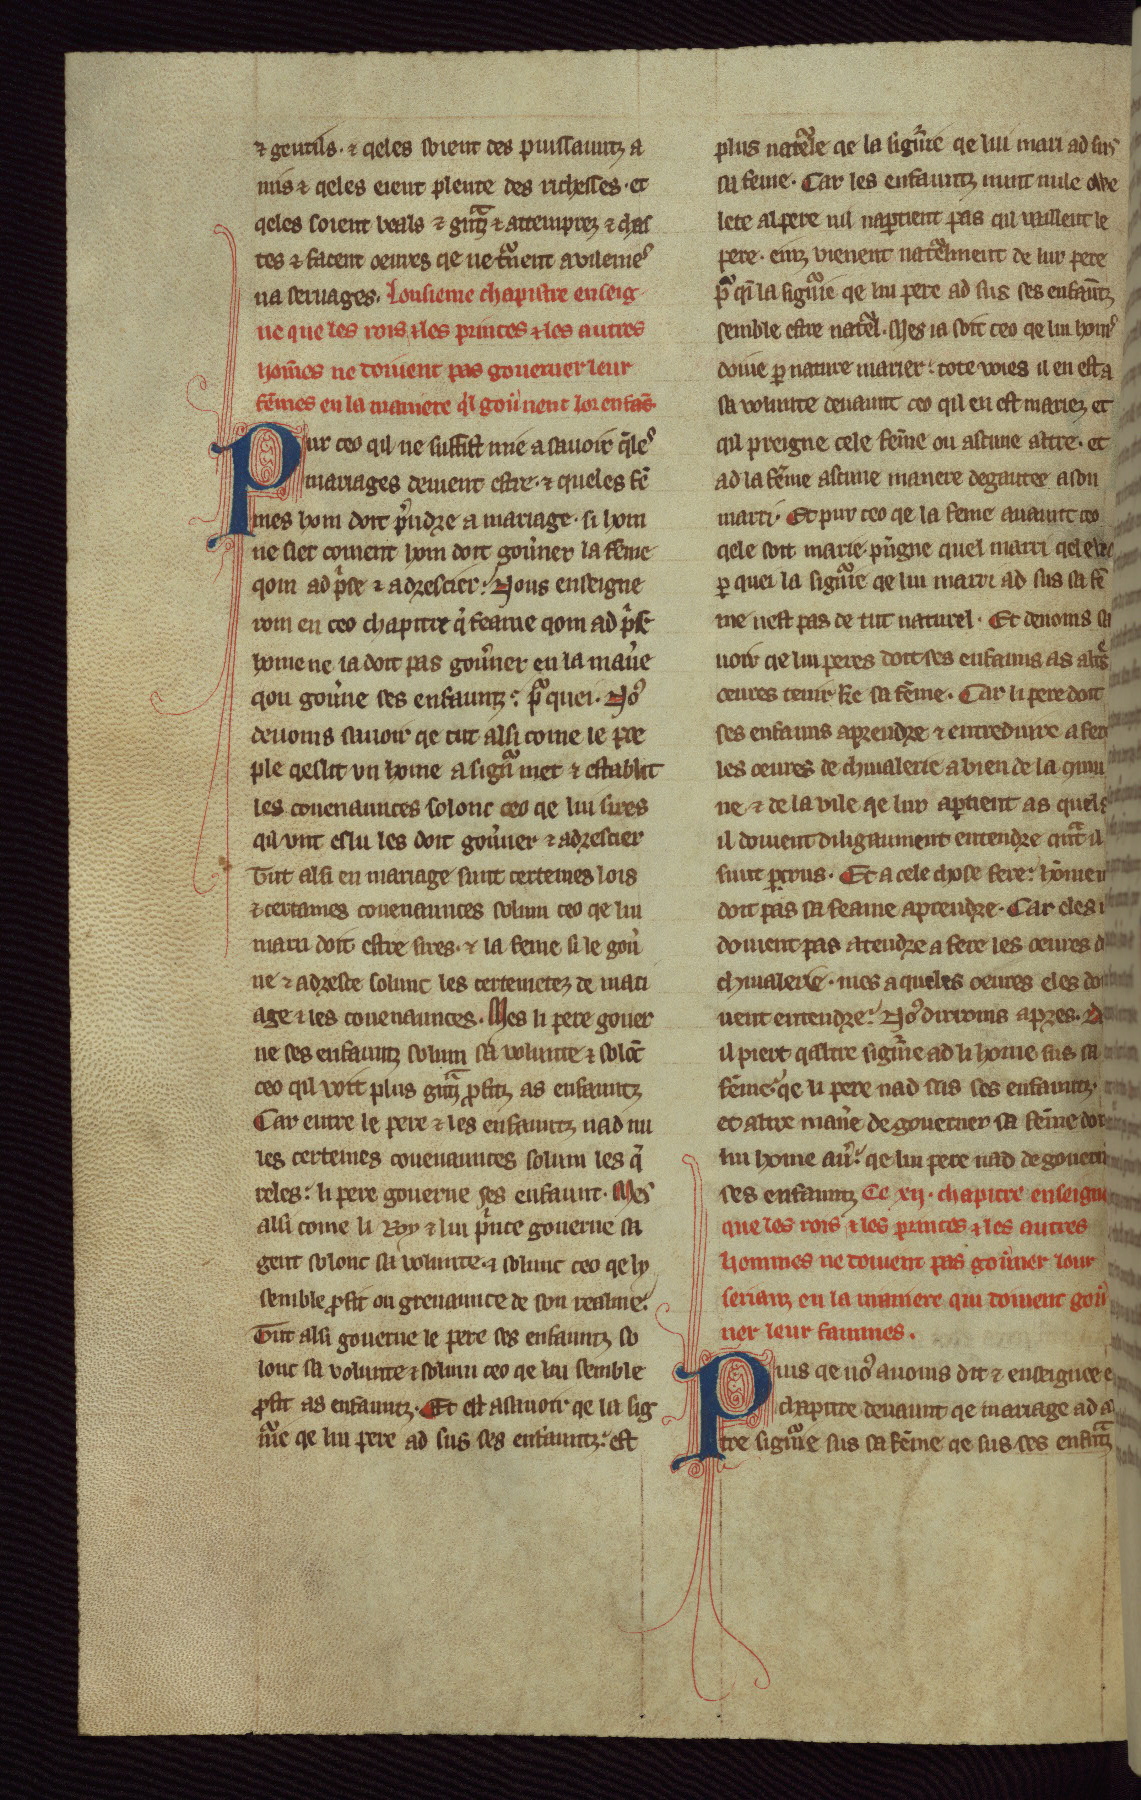 ⁊ gentils· ⁊ qeles soient des puissauntz a
mis ⁊ qeles eient plente des richesses· et
qeles soient beals ⁊ gn̄tz ⁊ attemprez ⁊ chas
tes ⁊ facent oeures qe ne
ua seruages· Lonsieme chapistre enseig
ne que les rois ⁊ les princes ⁊ les autres
hom̄es ne doiuent pas gouerner leur
fēmes en la maniere q̄l gou̾nent lor enfās
Pur ceo qil ne suffist mie a sauoir q̄les
mariages deiuent estre· ⁊ queles fē
mes hom doit p̾ndre a mariage· si hom
ne siet coment hom doit gou̾ner la feme
qom ad p̾se ⁊ adrescier: Nous enseigne
rom en ceo chapitre q̾ feame qom ad p̾se
home ne ia doit pas gou̾ner en la man̾e
qou gou̾ne ses enfauntz: pᵃ quei· No᾽
deuoms sauoir qe tut alsi come le poe
ple qeslit vn home a sign̄r met ⁊ establit
les couenaunces solonc ceo qe lui sires
qil vnt eslu les doit gou̾ner ⁊ adrescier
Tut alsi en mariage sunt certeines lois
⁊ certaines couenaunces solum ceo qe lui
marri doit estre sires· ⁊ la feme si le gou̾
ne ⁊ adresce solunc les certeinetez de mari
age ⁊ les couenaunces· Mes li pere gouer
ne ses enfauntz solum sa volunte ⁊ solōc
ceo qil voit plus gn̄tz ꝓfitz as enfauntz
Car entre le pere ⁊ les enfauntz nad nu
les certeines couenaunces solum les q̾
reles: li pere gouerne ses enfaunt· Mes
alsi come li Roy ⁊ lui p̾nce gouerne sa
gent solonc sa volunte· ⁊ solunc ceo qe ly
semble ꝓfit ou greuaunce de son realme:
Tut alsi gouerne le pere ses enfauntz so
lonc sa volunte ⁊ solum ceo qe lui semble
ꝓfit as enfauntz· Et est asauoir qe la sig
n̄rie qe lui pere ad sus ses enfauntz: est
plus natᵉle qe la sign̄rie qe lui mari ad sus
sa feme· Car les enfauntz nunt nule
lete al pere nil napartient pas qil vuillent le
pere· einz vienent natᵉlment de lur pere
pᵃ qi la sign̄rie qe lui pere ad sus ses enfaūtz
semble estre natᵉl· Mes ia soit ceo qe lui hom᾽
doiue ꝑ nature marier: tote voies il en est a
sa volunte deuaunt ceo qil en est mariez et
qil preigne cele fēme ou ascune altre· et
ad la fēme ascune manere degautee a son
marri· Et pur ceo qe la feme auaunt ceo
qele soit marie· p̾ngne quel marri
ꝑ quei la sign̄rie qe lui marri ad sus sa fē
me nest pas de tut naturel· Et deuoms sa
uoir qe lui peres doit ses enfauns as alt̾s
oeures tenir ke sa fēme· Car li pere doit
ses enfauns aprendre ⁊ entreduire a fere
les oeures de chiualerie a bien de la cumu
ne ⁊ de la vile qe lur aptient as quels
il doiuent diligaument entendre qn̄t il
sunt ꝑcrus· Et a cele chose fere: hōme n
doit pas sa feame aprendre· Car eles n
doiuent pas atendre a fere les oeures d
chiualerie· mes a queles oeures eles doi
uent entendre: No᾽ dirroms apres·
il piert qaltre sign̄rie ad li home sus sa
fēme: qe li pere nad sus ses enfauntz·
et altre man̾e de gouerner sa fēme doi
lui home au̾: qe lui pere nad de gouern
ses enfauntz Ce xij· chapitre enseigne
que les rois ⁊ les princes ⁊ les autres
hommes ne doiuent pas gou̾ner lour
serianz en la maniere qui doiuent gou̾
ner leur fammes·
Puis qe no᾽ auoms dit ⁊ enseignee e
chapitre deuaunt qe mariage ad a
tre sign̄rie sus sa fēme qe sus ses enfn̄tz